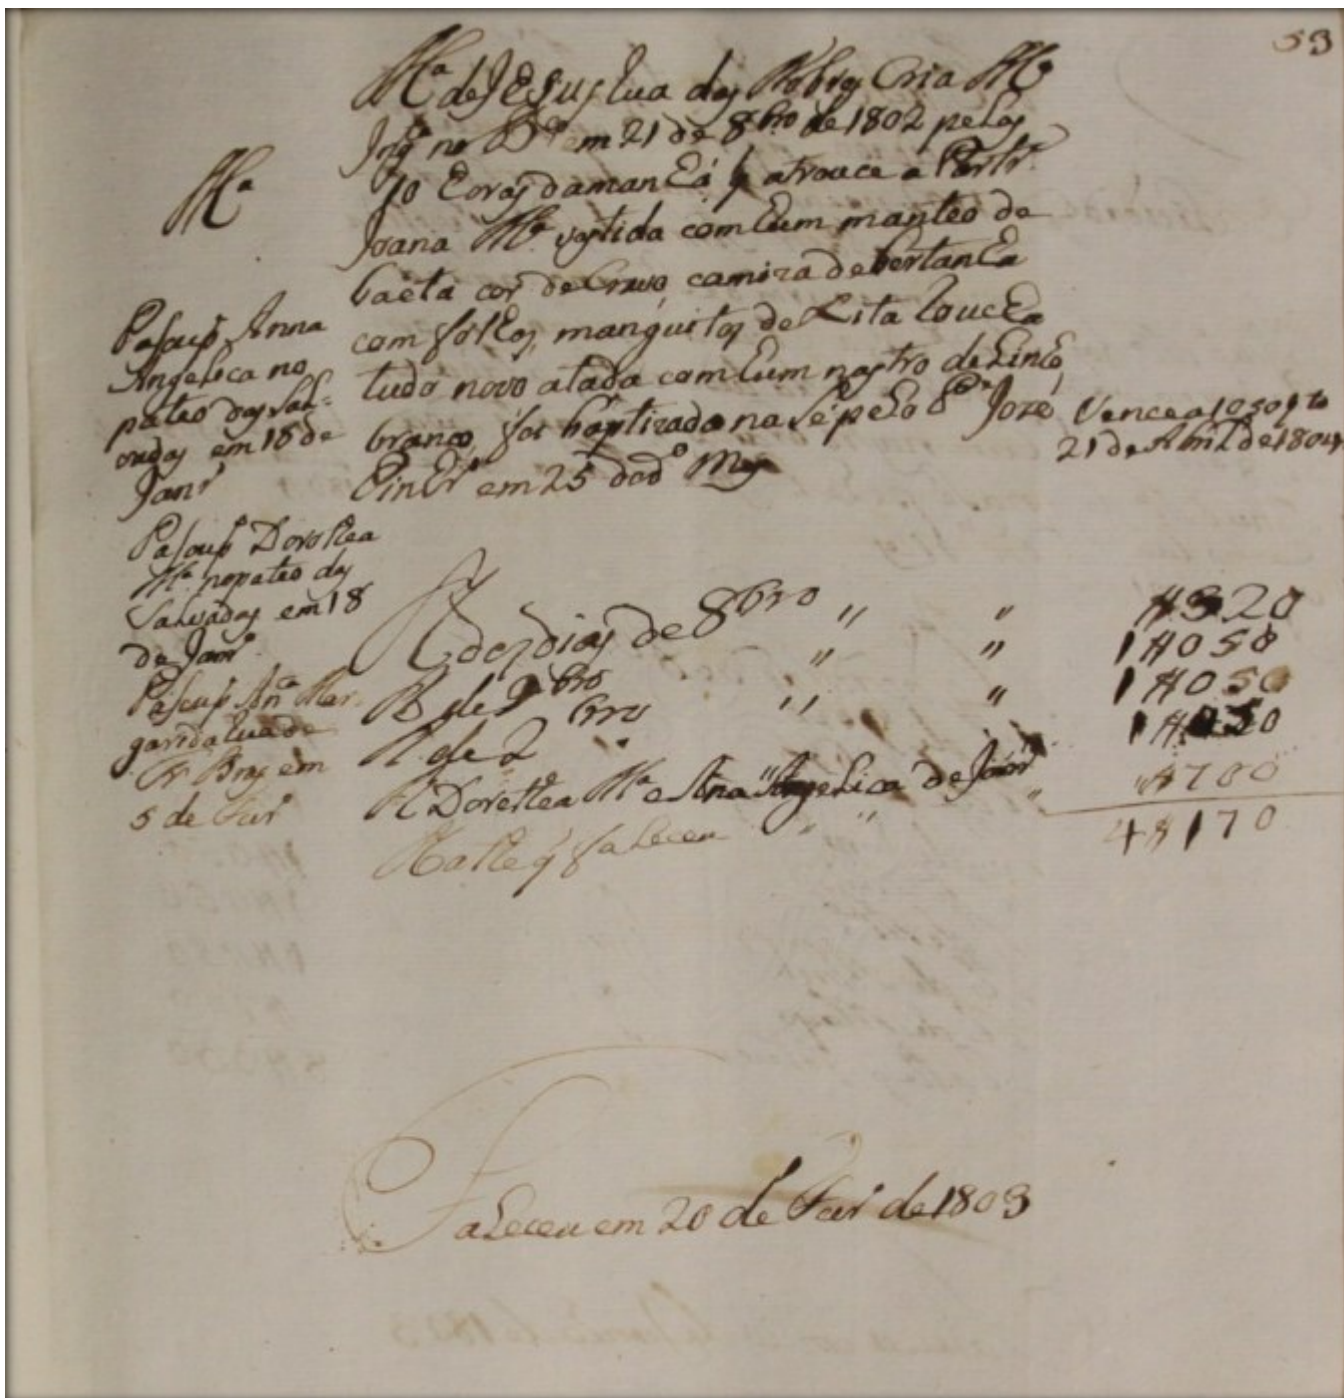 53
M.ª de Jesus Rua dos Nobres Cria M.ª
no em 21 de 8bro de 1802 pelas
10 Eoras damanEá q atrouce a Parteir.ª
Joana M.ª vestida com Eum manteo de
baeta cor de Cravo, camiza de bertanEa
com folEos, manguitos de Xita touca
tudo novo atada com Eum nastro de LinEo
branco, foi baptizada na Sé pelo José
PinEr.º em 25 do d.º Mes
Vence a 1050 té
21 de Abril de 1804
M.ª
Pasou p.ª Anna
Angelica no
pateo das Sal-
vadas em 18 de
Janr.º
Pasou p.ª Dorothea
M.ª no pateo das
Salvadas em 18
de Janr.º
Pasou p.ª An.ª Mar-
garida Rua de
S. Bras em
5 de Fevr.º
R. dez dias de 8bro " " #320
R. de 9bro " " 1#050
R. de Xbro " " 1#050
R. Dorothea M.ª e Ana Angelica de Janr.º " 1#050
R. athe q faleceu " " "#700
4#170
Faleceu em 20 de Fevr.º de 1803